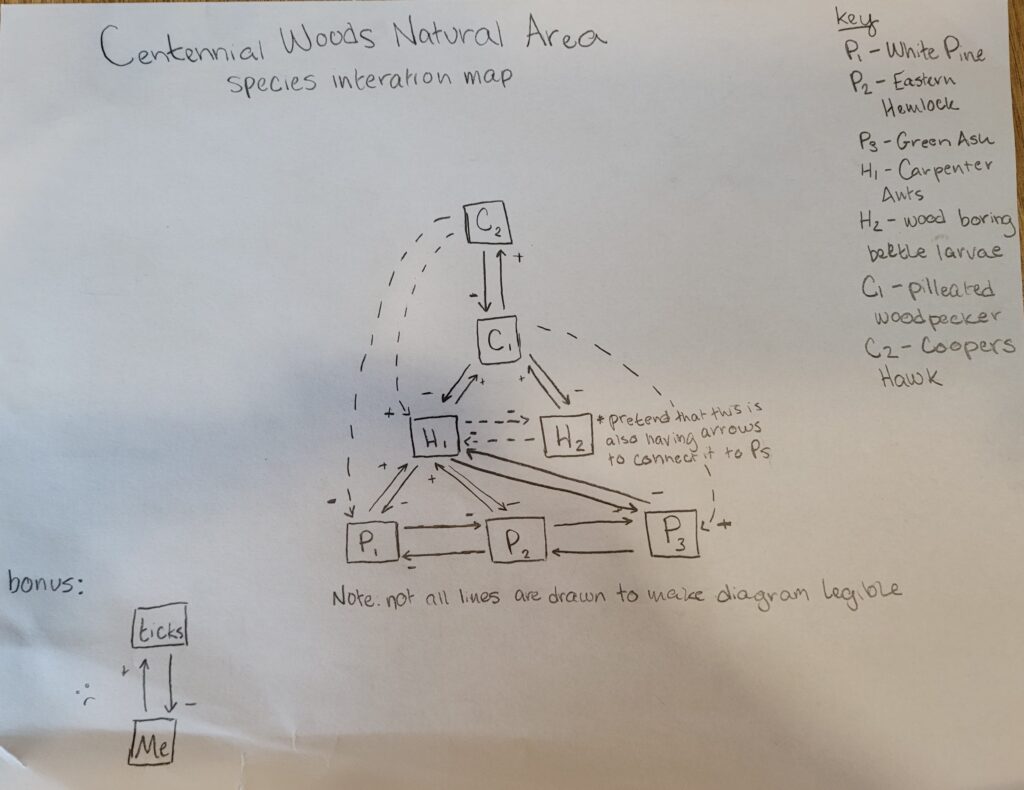 Centennial Woods Natural Area
species interation map
key
P1 - White Pine
P2 - Eastern
Hemlock
P3 - Green Ash
H1 - Carpenter
Ants
H2 - wood boring
beetle larvae
C1 - pilleated
woodpecker
C2 - Coopers
Hawk
C2
- +
C1
- + + -
+ H1 - - H2
* pretend that this is
also having arrows
to connect it to Ps
+ - + - -
- P1 - - P2 - P3 +
Note: not all lines are drawn to make diagram legible
bonus:
ticks
+ -
:(
Me